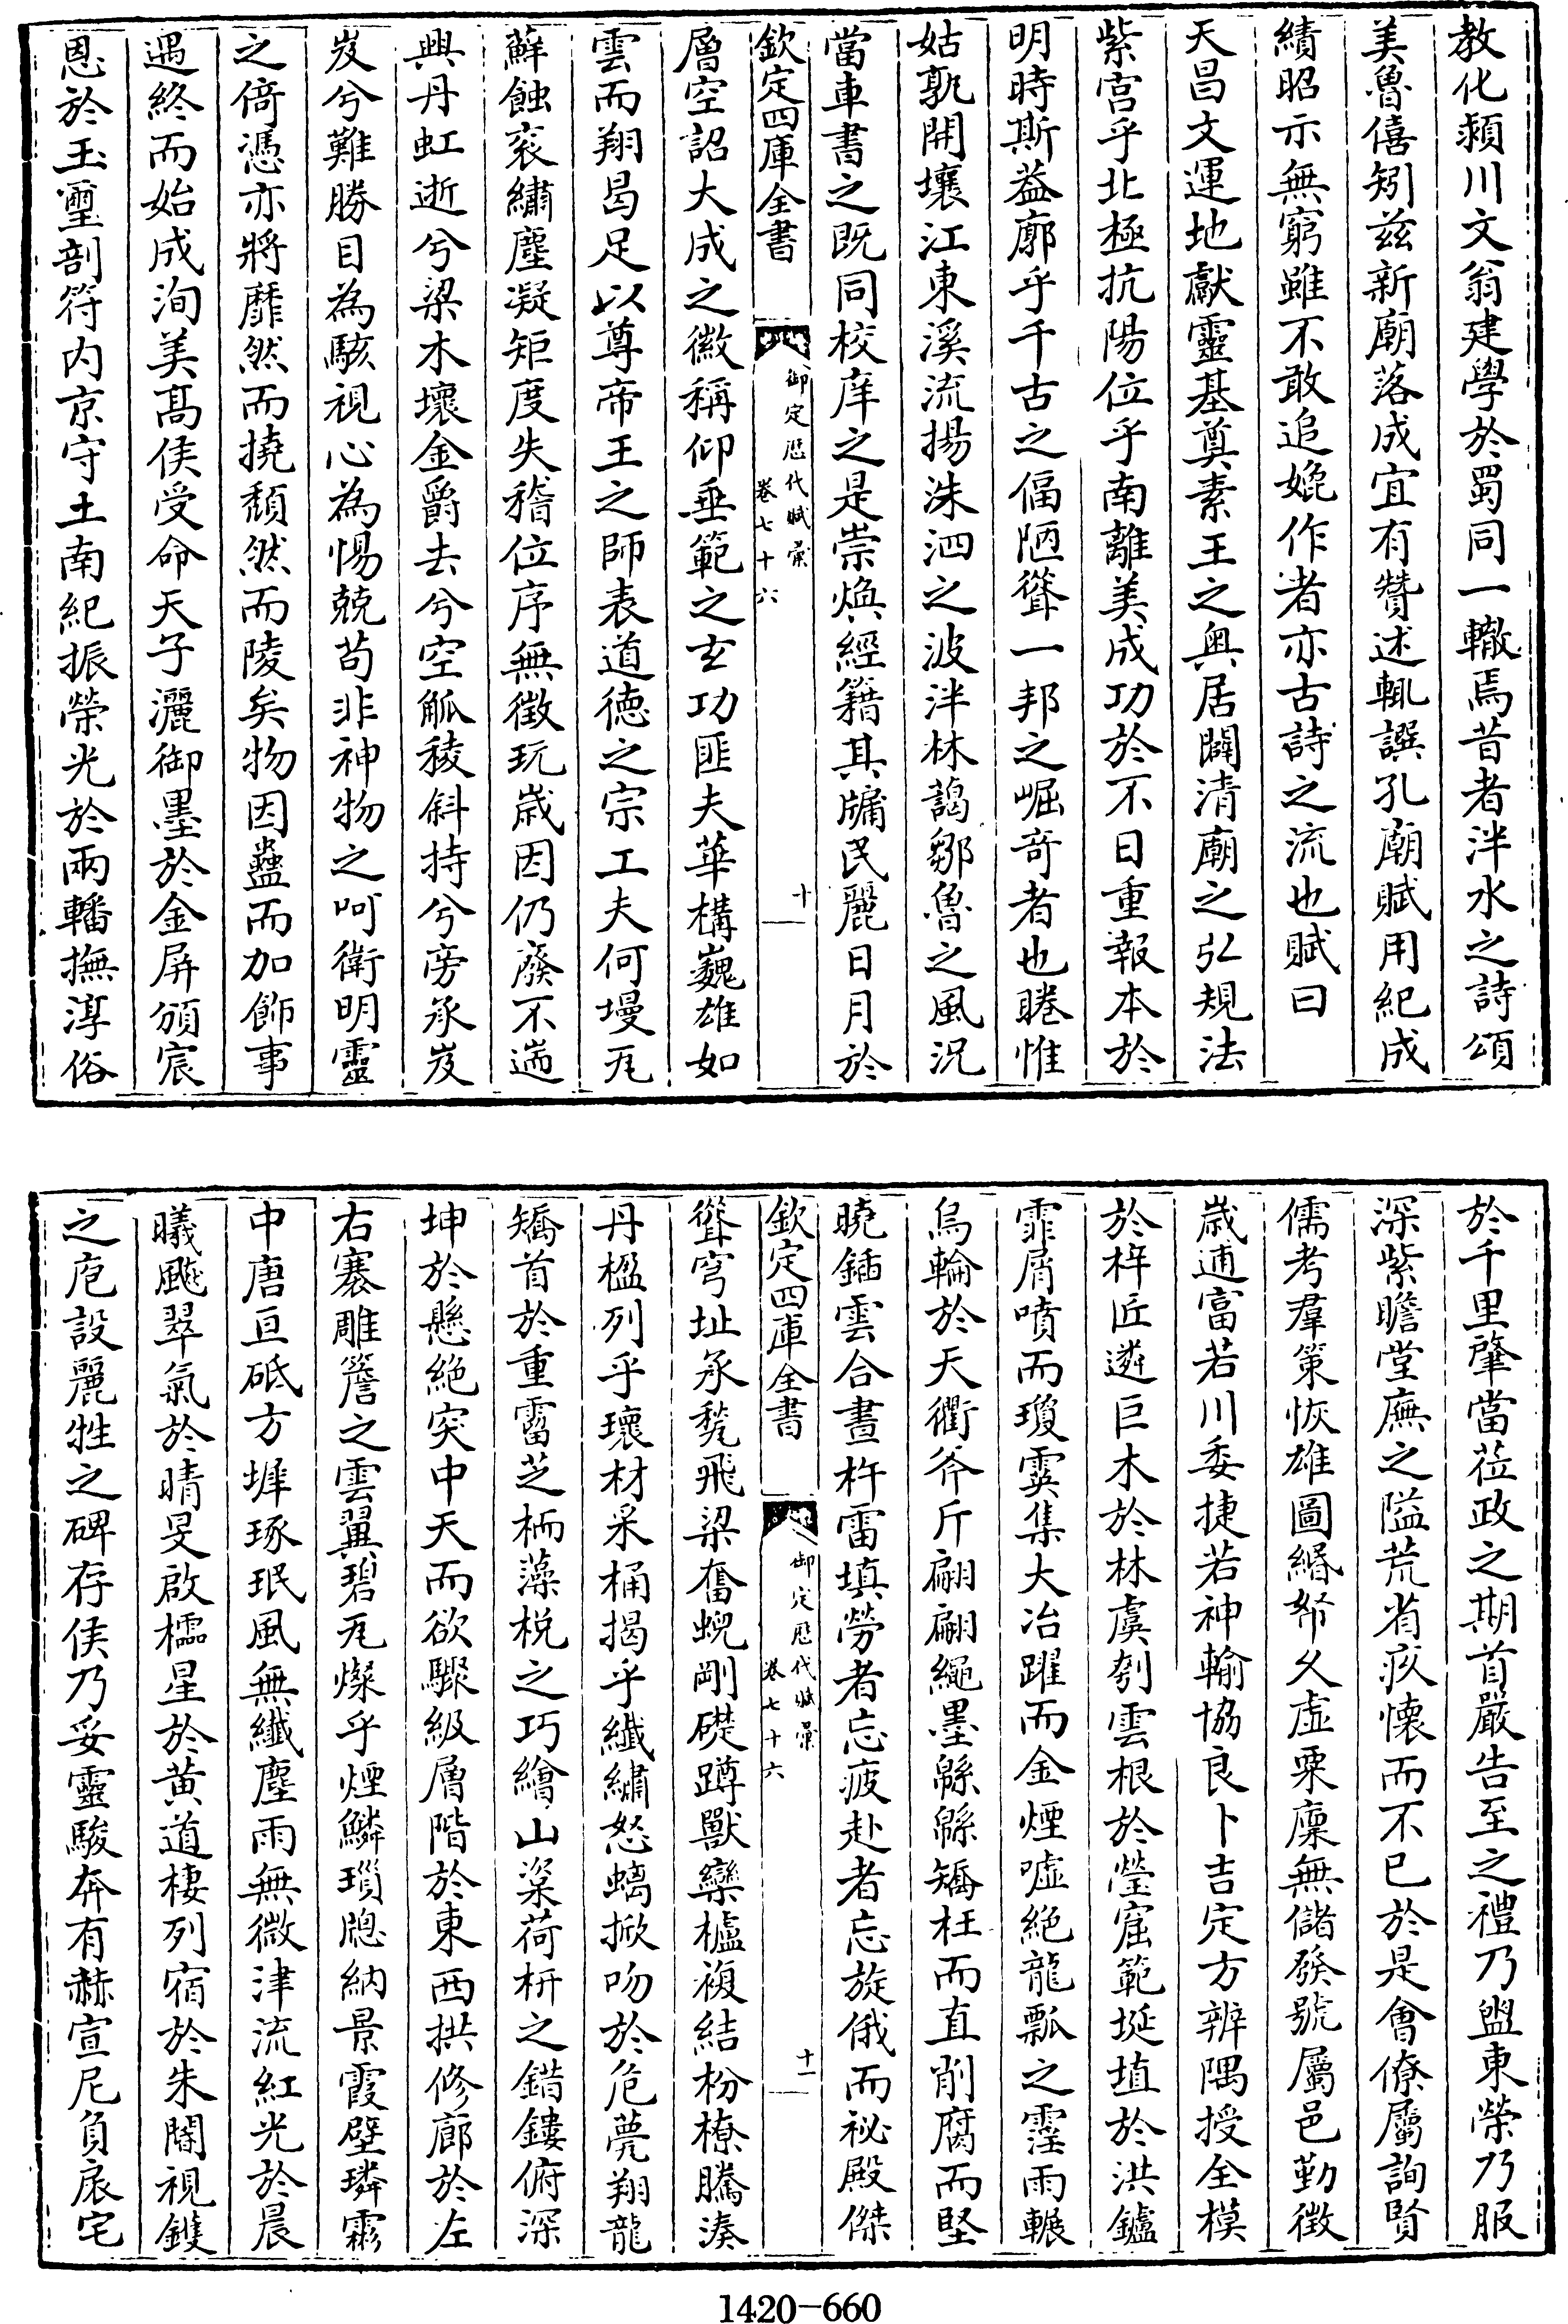 教化頻川文翁建學於蜀同一轍焉昔者泮水之詩頌
美魯僖矧兹新廟落成宜有贊述輒譔孔廟賦用紀成
績昭示無窮雖不敢追媲作者亦古詩之流也賦曰
天昌文運地獻靈基奠素王之奥居闢清廟之弘規法
紫宫乎北極抗陽位乎南離美成功於不日重報本於
明時斯葢廓乎千古之偪陋聳一邦之崛竒者也睠惟
姑孰開壤江東溪流揚洙泗之波泮林藹鄒魯之風況
當車書之既同校庠之是崇煥經籍其牖民麗日月於
欽定四庫全書
御定歷代賦彙
卷七十六
十
層空詔大成之徽稱仰垂範之玄功匪夫華構巍雄如
雲而翔曷足以尊帝王之師表道徳之宗工夫何墁瓦
蘚蝕衮繡塵凝矩度失稽位序無徵玩歳因仍廢不遄
興丹虹逝兮梁木壞金爵去兮空觚稜斜持兮旁承岌
岌兮難勝目為駭視心為惕兢苟非神物之呵衛明靈
之倚憑亦將靡然而撓頽然而陵矣物因蠱而加飾事
遇終而始成洵美髙侯受命天子灑御墨於金屏頒宸
恩於玉璽剖符内京守土南紀振榮光於兩轓撫淳俗
於千里肇當莅政之期首嚴告至之禮乃盥東榮乃服
深紫瞻堂廡之隘荒省疚懷而不已於是會僚屬詢賢
儒考羣策恢雄圖緡帑久虚粟廩無儲發號屬邑勤徴
歳逋富若川委捷若神輸協良卜吉定方辨隅授全模
於梓匠遴巨木於林虞刳雲根於瑩窟範埏埴於洪鑪
霏屑噴而瓊霙集大冶躍而金煙嘘絶龍瓢之霪雨輾
烏輪於天衢斧斤翩翩繩墨緜緜矯枉而直削腐而堅
曉鍤雲合晝杵雷填勞者忘疲赴者忘旋俄而祕殿傑
欽定四庫全書
御定歷代賦彙
卷七十六
十一
聳穹址承甃飛梁奮蜺剛礎蹲獸欒櫨複結枌橑騰湊
丹楹列乎瓌材采桷揭乎纎繡怒螭掀吻於危甍翔龍
矯首於重霤芝栭藻梲之巧繪山楶荷枅之錯鏤俯深
坤於懸絶突中天而欲驟級層階於東西拱修廊於左
右褰雕簷之雲翼碧瓦燦乎煙鱗瑣牕納景霞壁璘霦
中唐亘砥方墀琢珉風無纎塵雨無微津流紅光於晨
曦颺翠氣於晴旻啟櫺星於黄道棲列宿於朱闥視鑊
之庖設麗牲之碑存侯乃妥靈駿奔有赫宣尼負扆宅
1420-660